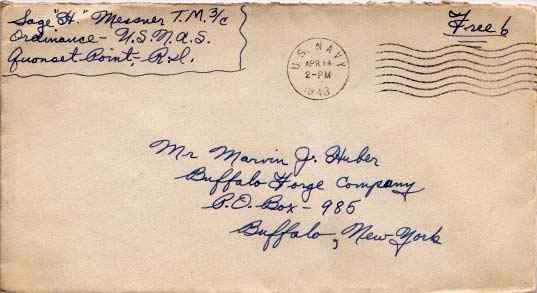 Sage "H." Messner T.M. 3/c
Ordinance - U.S.N.A.S.
Quonset Point, R.I.
Free 6
U.S. NAVY
APR 14
2-PM
1943
Mr Marvin J. Huber
Buffalo Forge Company
P.O. Box - 985
Buffalo, New York